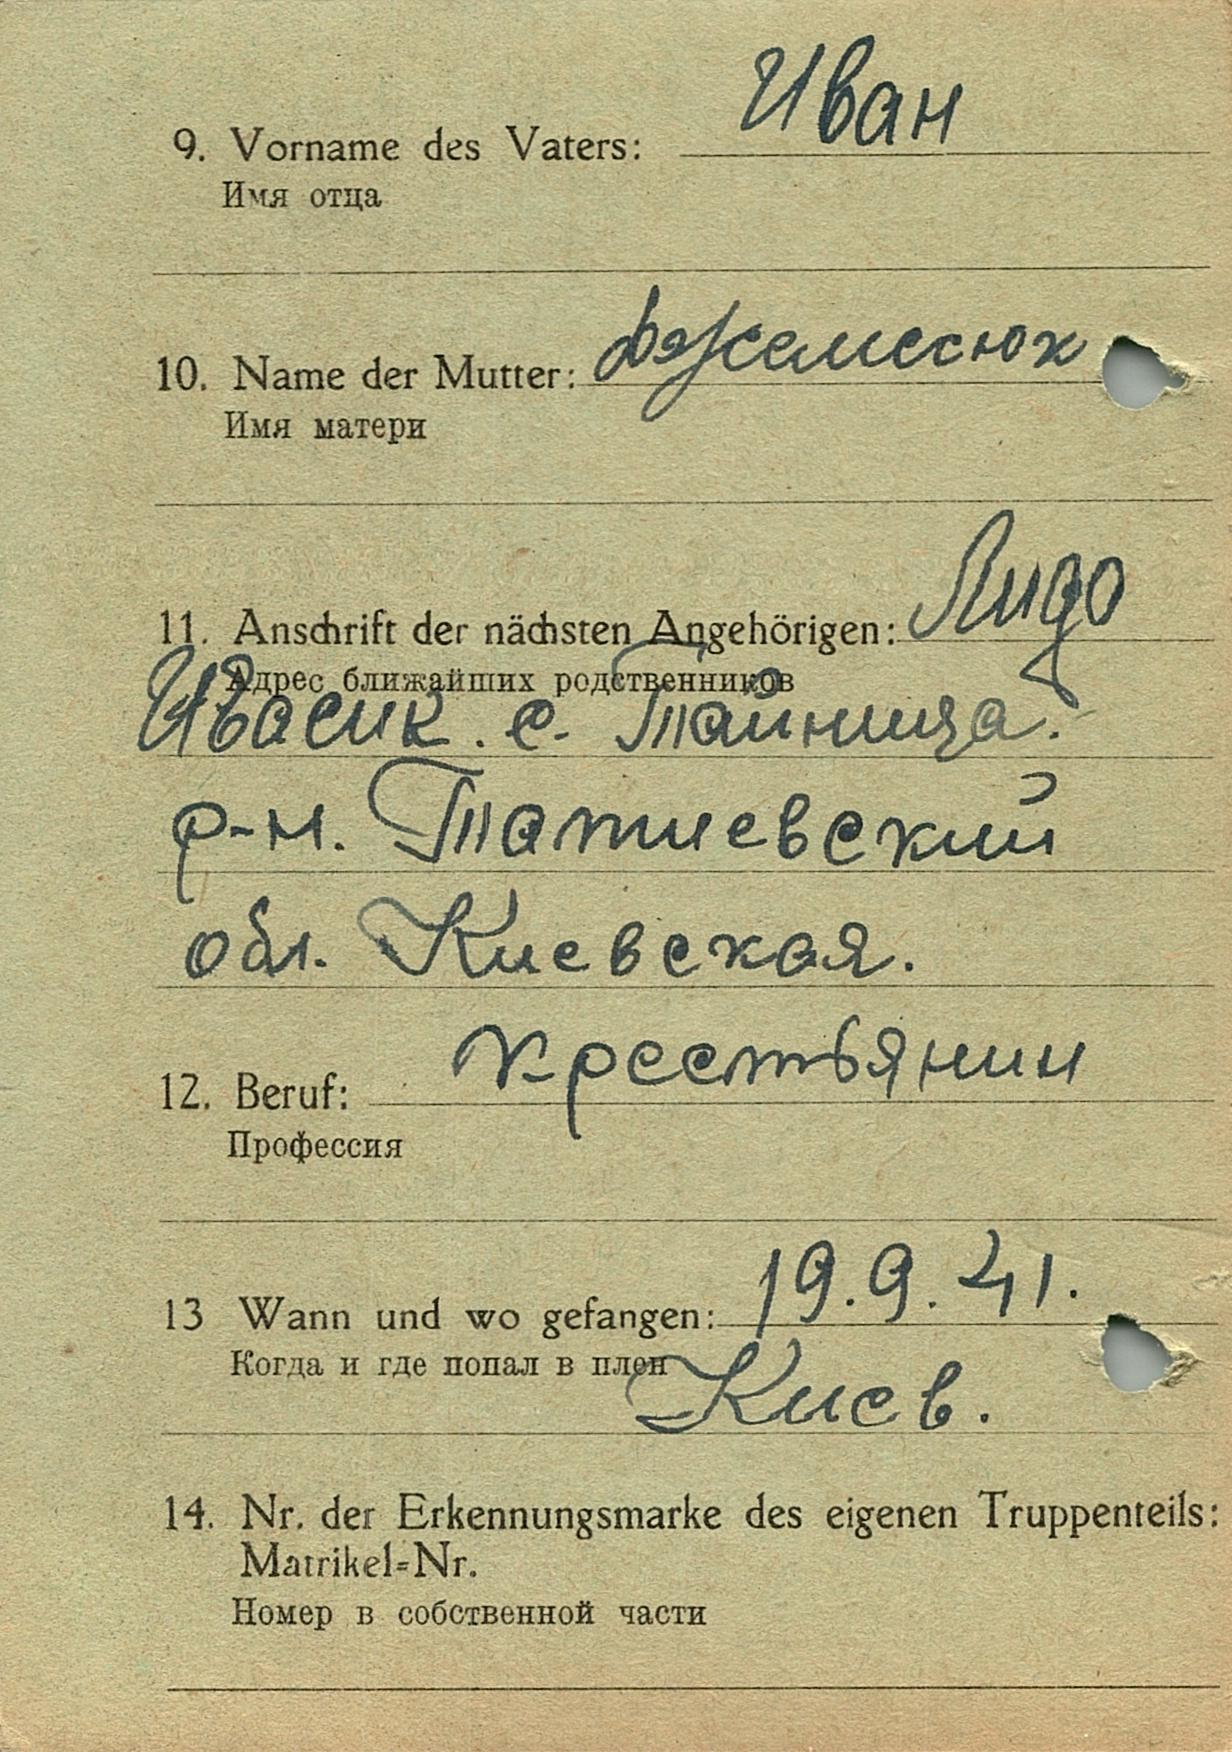 9. Vorname des Vaters: Иван
Имя отца
10. Name der Mutter:
Имя матери
11. Anschrift der nächsten Angehörigen: Лида
Адрес ближайших родственников
Ивасик. с. Тайница.
р-н. Татиевский
обл. Киевская.
12. Beruf: Крестьянин
Профессия
13 Wann und wo gefangen: 19.9.41.
Когда и где попал в плен
Киев.
14. Nr. der Erkennungsmarke des eigenen Truppenteils:
Matrikel=Nr.
Номер в собственной части